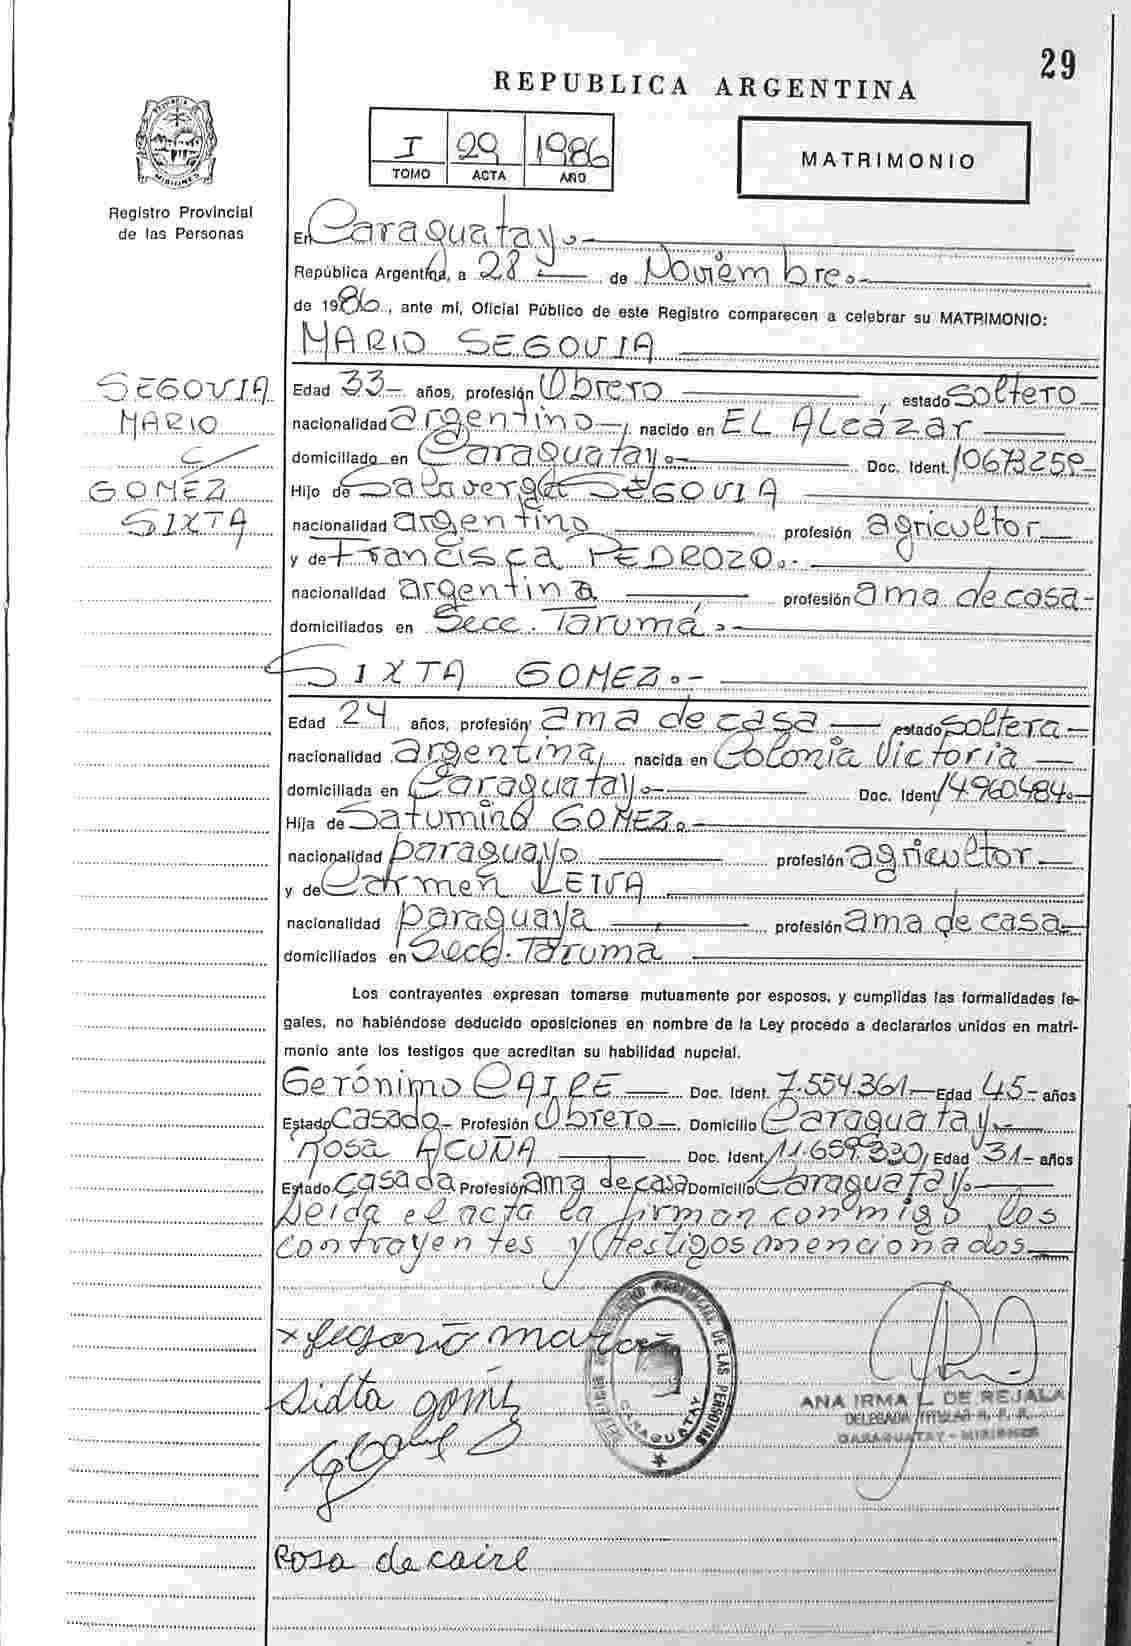 29
REPUBLICA ARGENTINA
I 29 1986
TOMO ACTA AÑO
MATRIMONIO
MISIONES
Registro Provincial
de las Personas
En Caraguatay.-
República Argentina, a 28 de Noviembre.-
de 1986., ante mi, Oficial Público de este Registro comparecen a celebrar su MATRIMONIO:
MARIO SEGOVIA
SEGOVIA
MARIO
c/
GOMEZ
SIXTA
Edad 33- años, profesión Obrero , estado soltero-
nacionalidad argentino-, nacido en EL Alcázar
domiciliado en Caraguatay.- Doc. Ident. 10673259-
Hijo de SEGOVIA
nacionalidad argentino profesión agricultor-
y de Francisca PEDROZO.-
nacionalidad argentina profesión ama de casa-
domiciliados en Secc. Tarumá.-
SIXTA GOMEZ.-
Edad 24 años, profesión ama de casa - estado soltera-
nacionalidad argentina, nacida en Colonia Victoria -
domiciliada en Caraguatay.- Doc. Ident 14.960.484.-
Hija de Saturnino GOMEZ.-
nacionalidad paraguayo profesión agricultor-
y de Carmen LEIVA
nacionalidad paraguaya profesión ama de casa-
domiciliados en Secc. Taruma
Los contrayentes expresan tomarse mutuamente por esposos, y cumplidas las formalidades le-
gales, no habiéndose deducido oposiciones en nombre de la Ley procedo a declararlos unidos en matri-
monio ante los testigos que acreditan su habilidad nupcial.
Gerónimo CAIRE Doc. Ident. 7.554.361- Edad 45- años
Estado casado- Profesión Obrero-. Domicilio Caraguatay.-
Rosa ACUÑA Doc. Ident. 11.659.330, Edad 31- años
Estado casada Profesión ama de casa Domicilio Caraguatay.-
Leida el acta la firman conmigo los
contrayentes y testigos mencionados-
x segovia mario
Sidta gomes
REGISTRO PROVINCIAL DE LAS PERSONAS
CARAGUATAY
MISIONES
ANA IRMA L. DE REJALA
DELEGADA TITULAR R. P. P.
CARAGUATAY - MISIONES
Rosa de caire